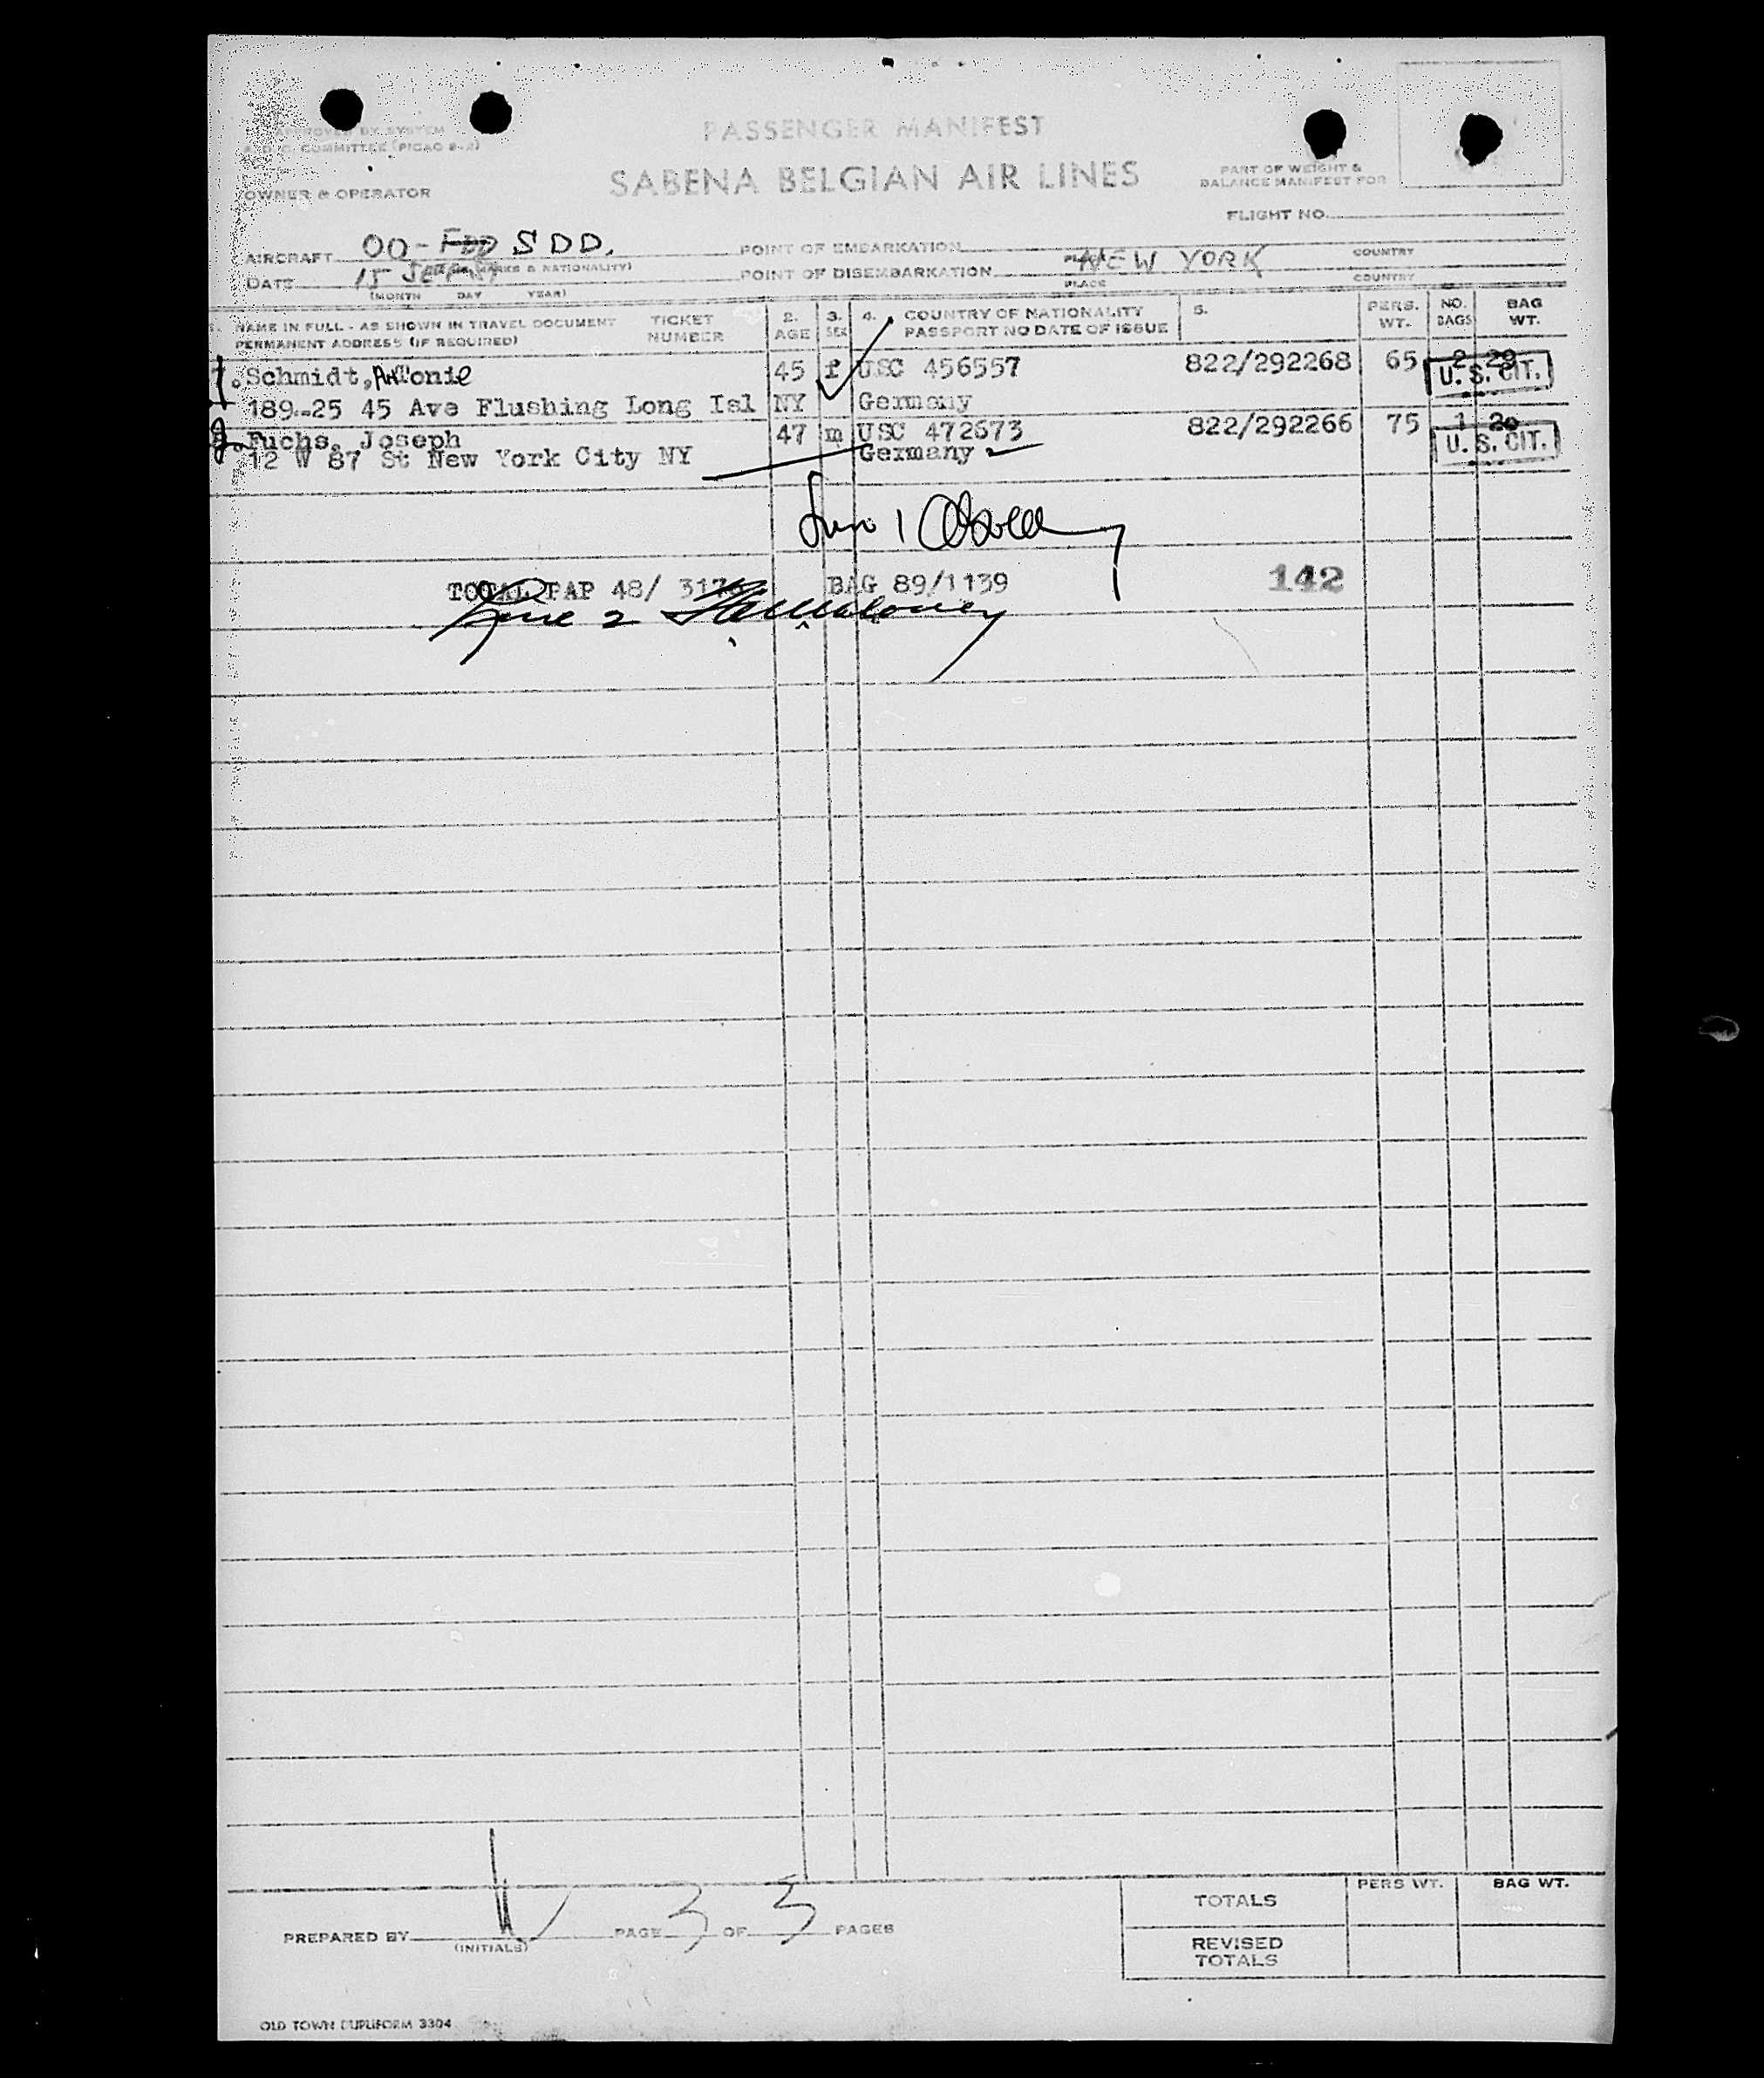 APPROVED BY SYSTEM
COMMITTEE (PICAO 8-2)
OWNER & OPERATOR
PASSENGER MANIFEST
SABENA BELGIAN AIR LINES
PART OF WEIGHT &
BALANCE MANIFEST FOR
FLIGHT NO.
AIRCRAFT OO- FDD SDD. POINT OF EMBARKATION COUNTRY
(MARKS & NATIONALITY) PLACE
DATE 15 POINT OF DISEMBARKATION NEW YORK COUNTRY
(MONTH DAY YEAR) PLACE
1. NAME IN FULL - AS SHOWN IN TRAVEL DOCUMENT TICKET 2. 3. 4. COUNTRY OF NATIONALITY 5. PERS. NO. BAG
PERMANENT ADDRESS (IF REQUIRED) NUMBER AGE SEX PASSPORT NO DATE OF ISSUE WT. BAGS WT.
1. Schmidt, Antonie 45 f USC 456557 822/292268 65 2 29
U. S. CIT.
189-25 45 Ave Flushing Long Isl NY Germany
2. Fuchs, Joseph 47 m USC 472673 822/292266 75 1 20
U. S. CIT.
12 W 87 St New York City NY Germany
TOTAL PAP 48/ BAG 89/1139 142
PREPARED BY PAGE 3 OF 3 PAGES
(INITIALS)
PERS WT. BAG WT.
TOTALS
REVISED
TOTALS
OLD TOWN DUPLIFORM 3304